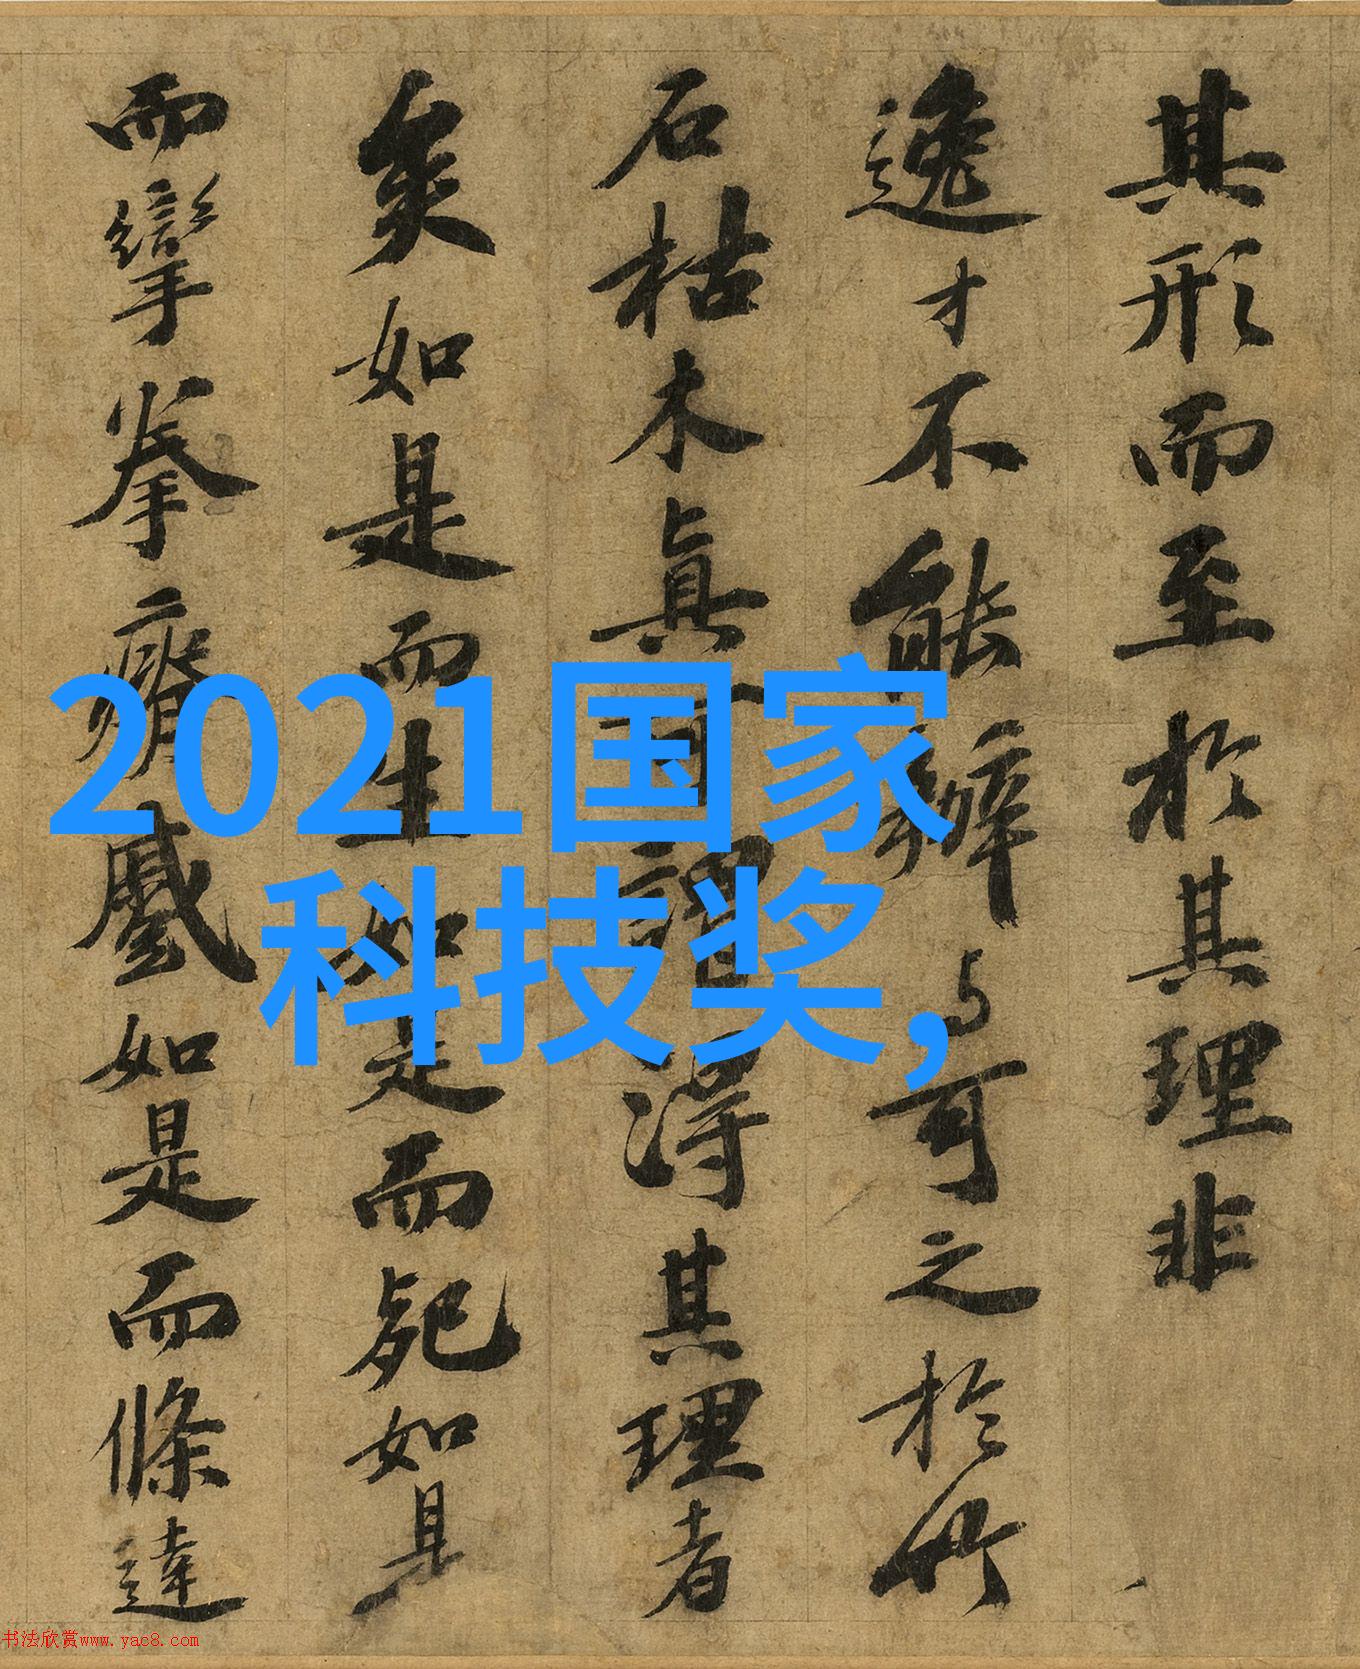 其形而至於其理非
逸才不能辦与可之於竹
石枯木真可謂得其理者
矣如是而生如是而死如是
而攣拳瘠蹙如是而條達
2021国家
科技奖,
书法欣赏www.yac8.com